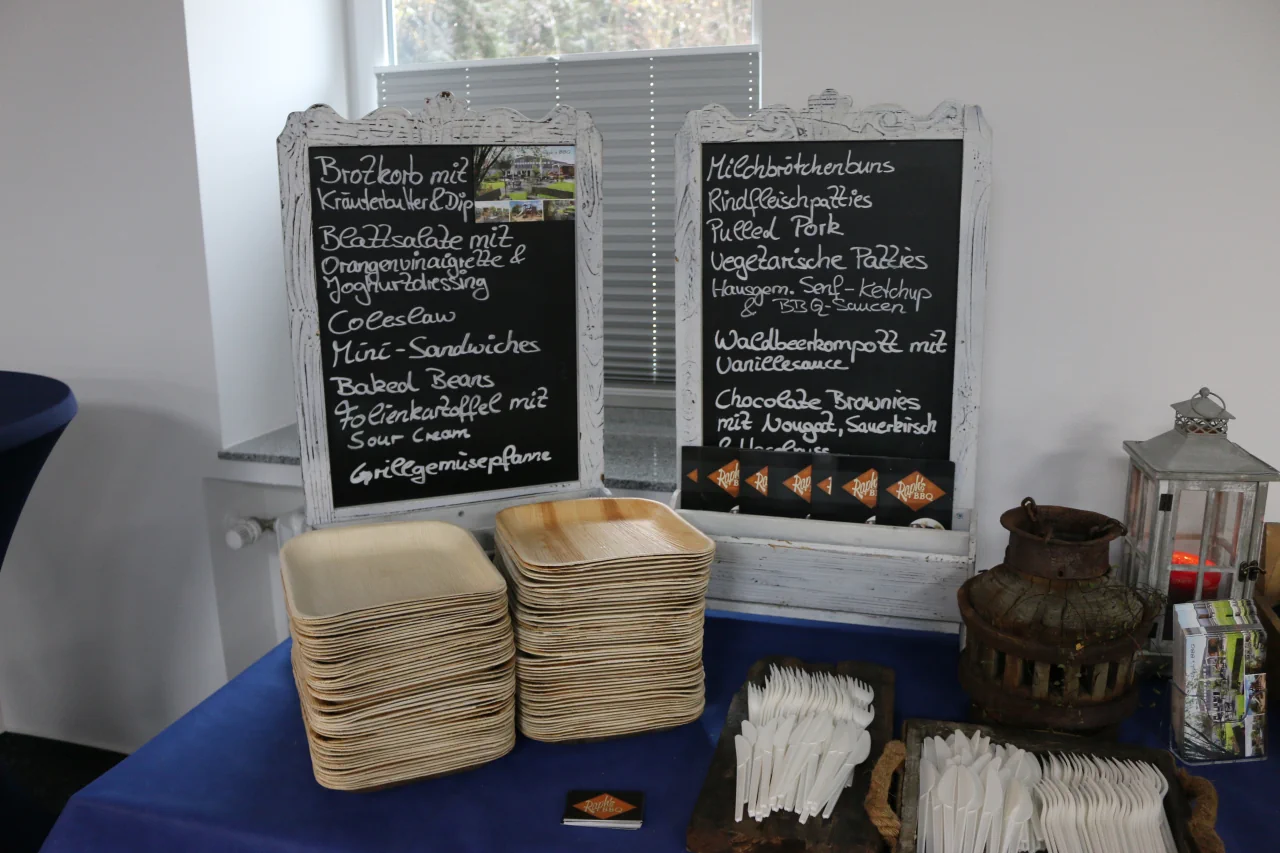 Brotkorb mit
Kräuterbutter & Dip
Blattsalate mit
Orangenvinaigrette &
Joghurtdressing
Coleslaw
Mini-Sandwiches
Baked Beans
Folienkartoffel mit
Sour Cream
Grillgemüsepfanne
Milchbrötchenbuns
Rindfleischpatties
Pulled Pork
Vegetarische Patties
Hausgem. Senf-Ketchup
& BBQ-Saucen
Waldbeerkompott mit
Vanillesauce
Chocolate Brownies
mit Nougat, Sauerkirsch
& Haselnuss
Raph's
BBQ
Raph's
BBQ
Raph's
BBQ